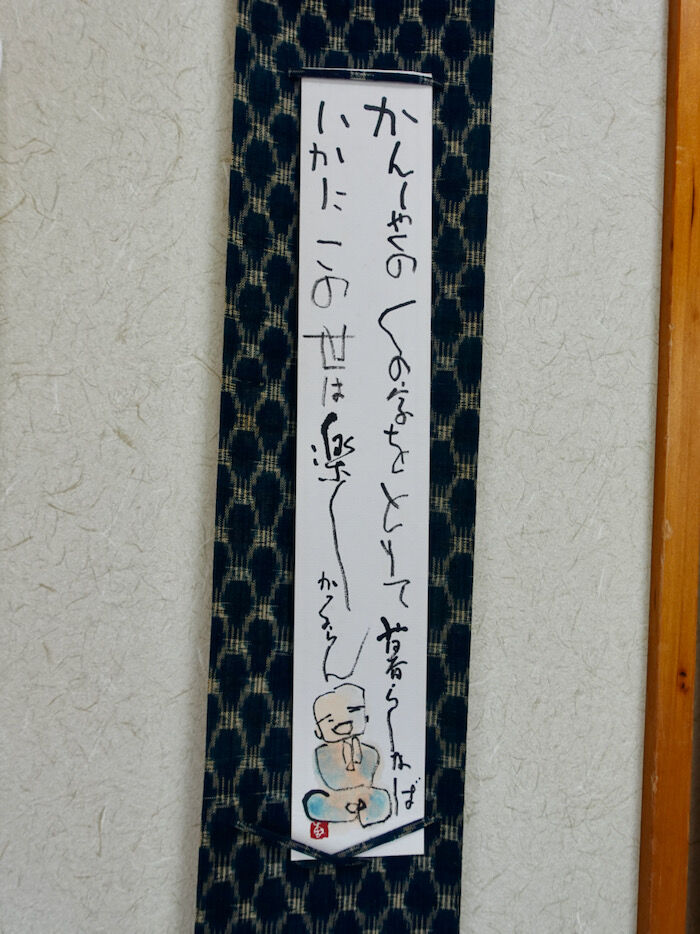 かんしゃくの くの字をとりて 暮らしなば
いかに この 世は 楽し かるらん